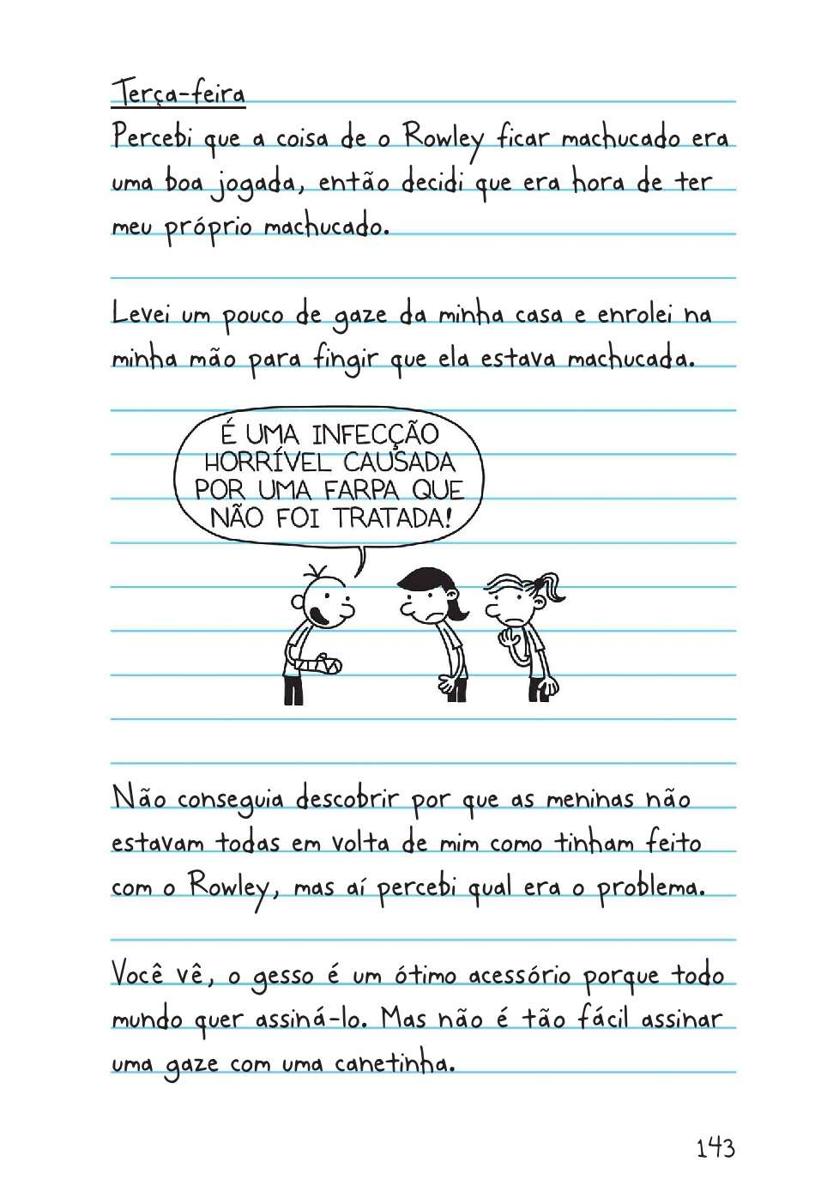 Terça-feira
Percebi que a coisa de o Rowley ficar machucado era
uma boa jogada, então decidi que era hora de ter
meu próprio machucado.
Levei um pouco de gaze da minha casa e enrolei na
minha mão para fingir que ela estava machucada.
É UMA INFECÇÃO
HORRÍVEL CAUSADA
POR UMA FARPA QUE
NÃO FOI TRATADA!
Não conseguia descobrir por que as meninas não
estavam todas em volta de mim como tinham feito
com o Rowley, mas aí percebi qual era o problema.
Você vê, o gesso é um ótimo acessório porque todo
mundo quer assiná-lo. Mas não é tão fácil assinar
uma gaze com uma canetinha.
143